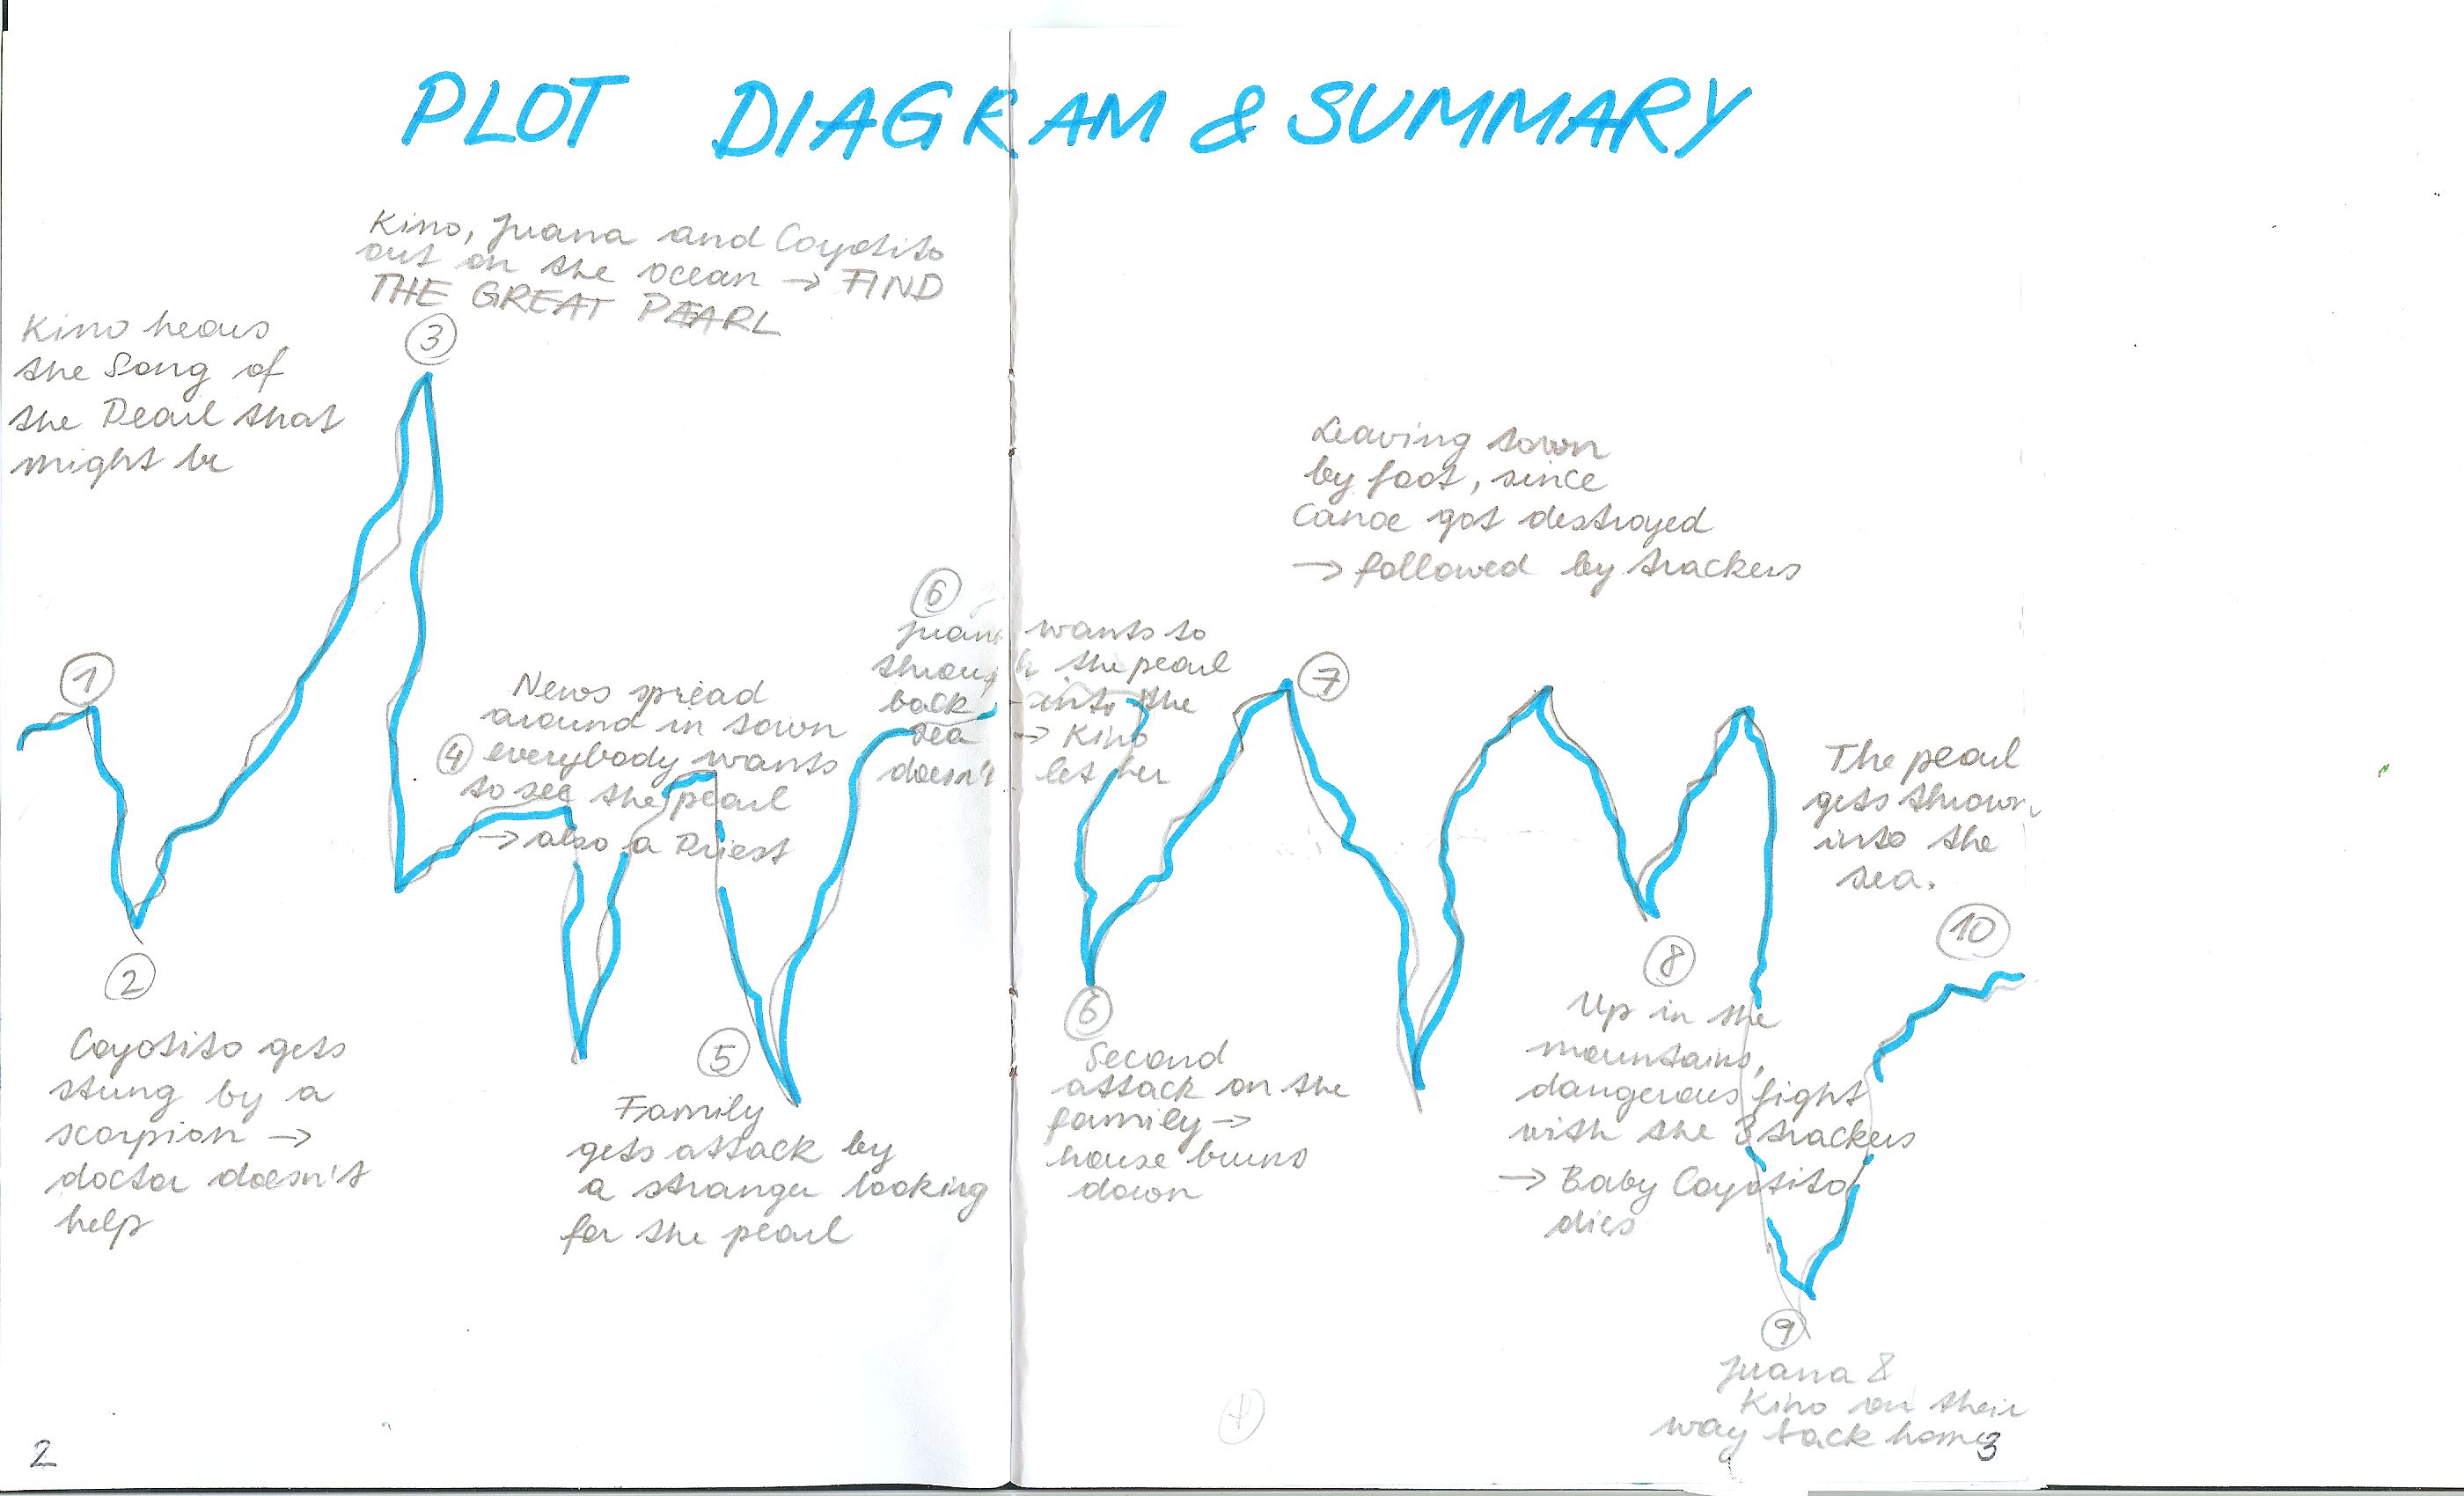 PLOT DIAGRAM & SUMMARY
Kino, Juana and Coyotito
out on the ocean → FIND
THE GREAT PEARL
3
Kino hears
the Song of
the Pearl that
might be
1
2
Coyotito gets
stung by a
scorpion →
doctor doesn't
help
News spread
around in town
4 everybody wants
to see the pearl
→ also a Priest
5
Family
gets attack by
a stranger looking
for the pearl
6
Juana wants to
through the pearl
back into the
sea → Kino
doesn't let her
6
Second
attack on the
family →
house burns
down
Leaving town
by foot, since
Canoe got destroyed
→ followed by trackers
7
8
Up in the
mountains,
dangerous fight
with the 3 trackers
→ Baby Coyotito
dies
9
Juana &
Kino on their
way back home
The pearl
gets thrown
into the
sea.
10
2
3